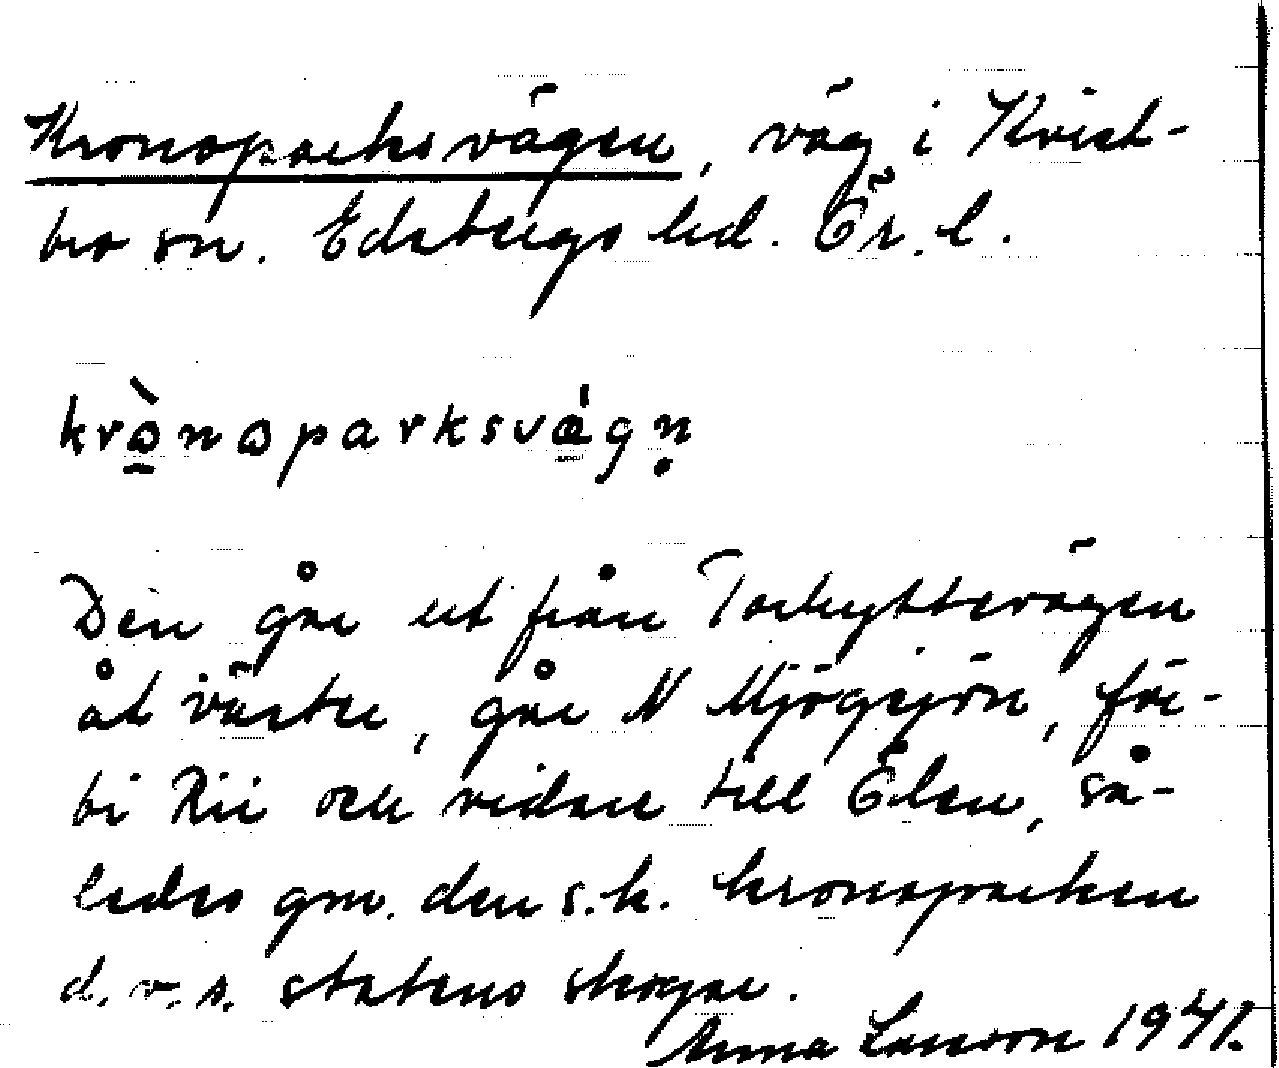 Kronoparksvägen, väg i Kvist-
bro sn. Edsbergs hd. Ör. l.
krònoparksvǽgṇ
Den går ut från Torhyttevägen
åt väster, går N Mjögsjön, för-
bi Rii och vidare till Ölen, så-
ledes gm. den s.k. kronoparken
d.v.s. statens skogar.
Anna Larsson 1941.